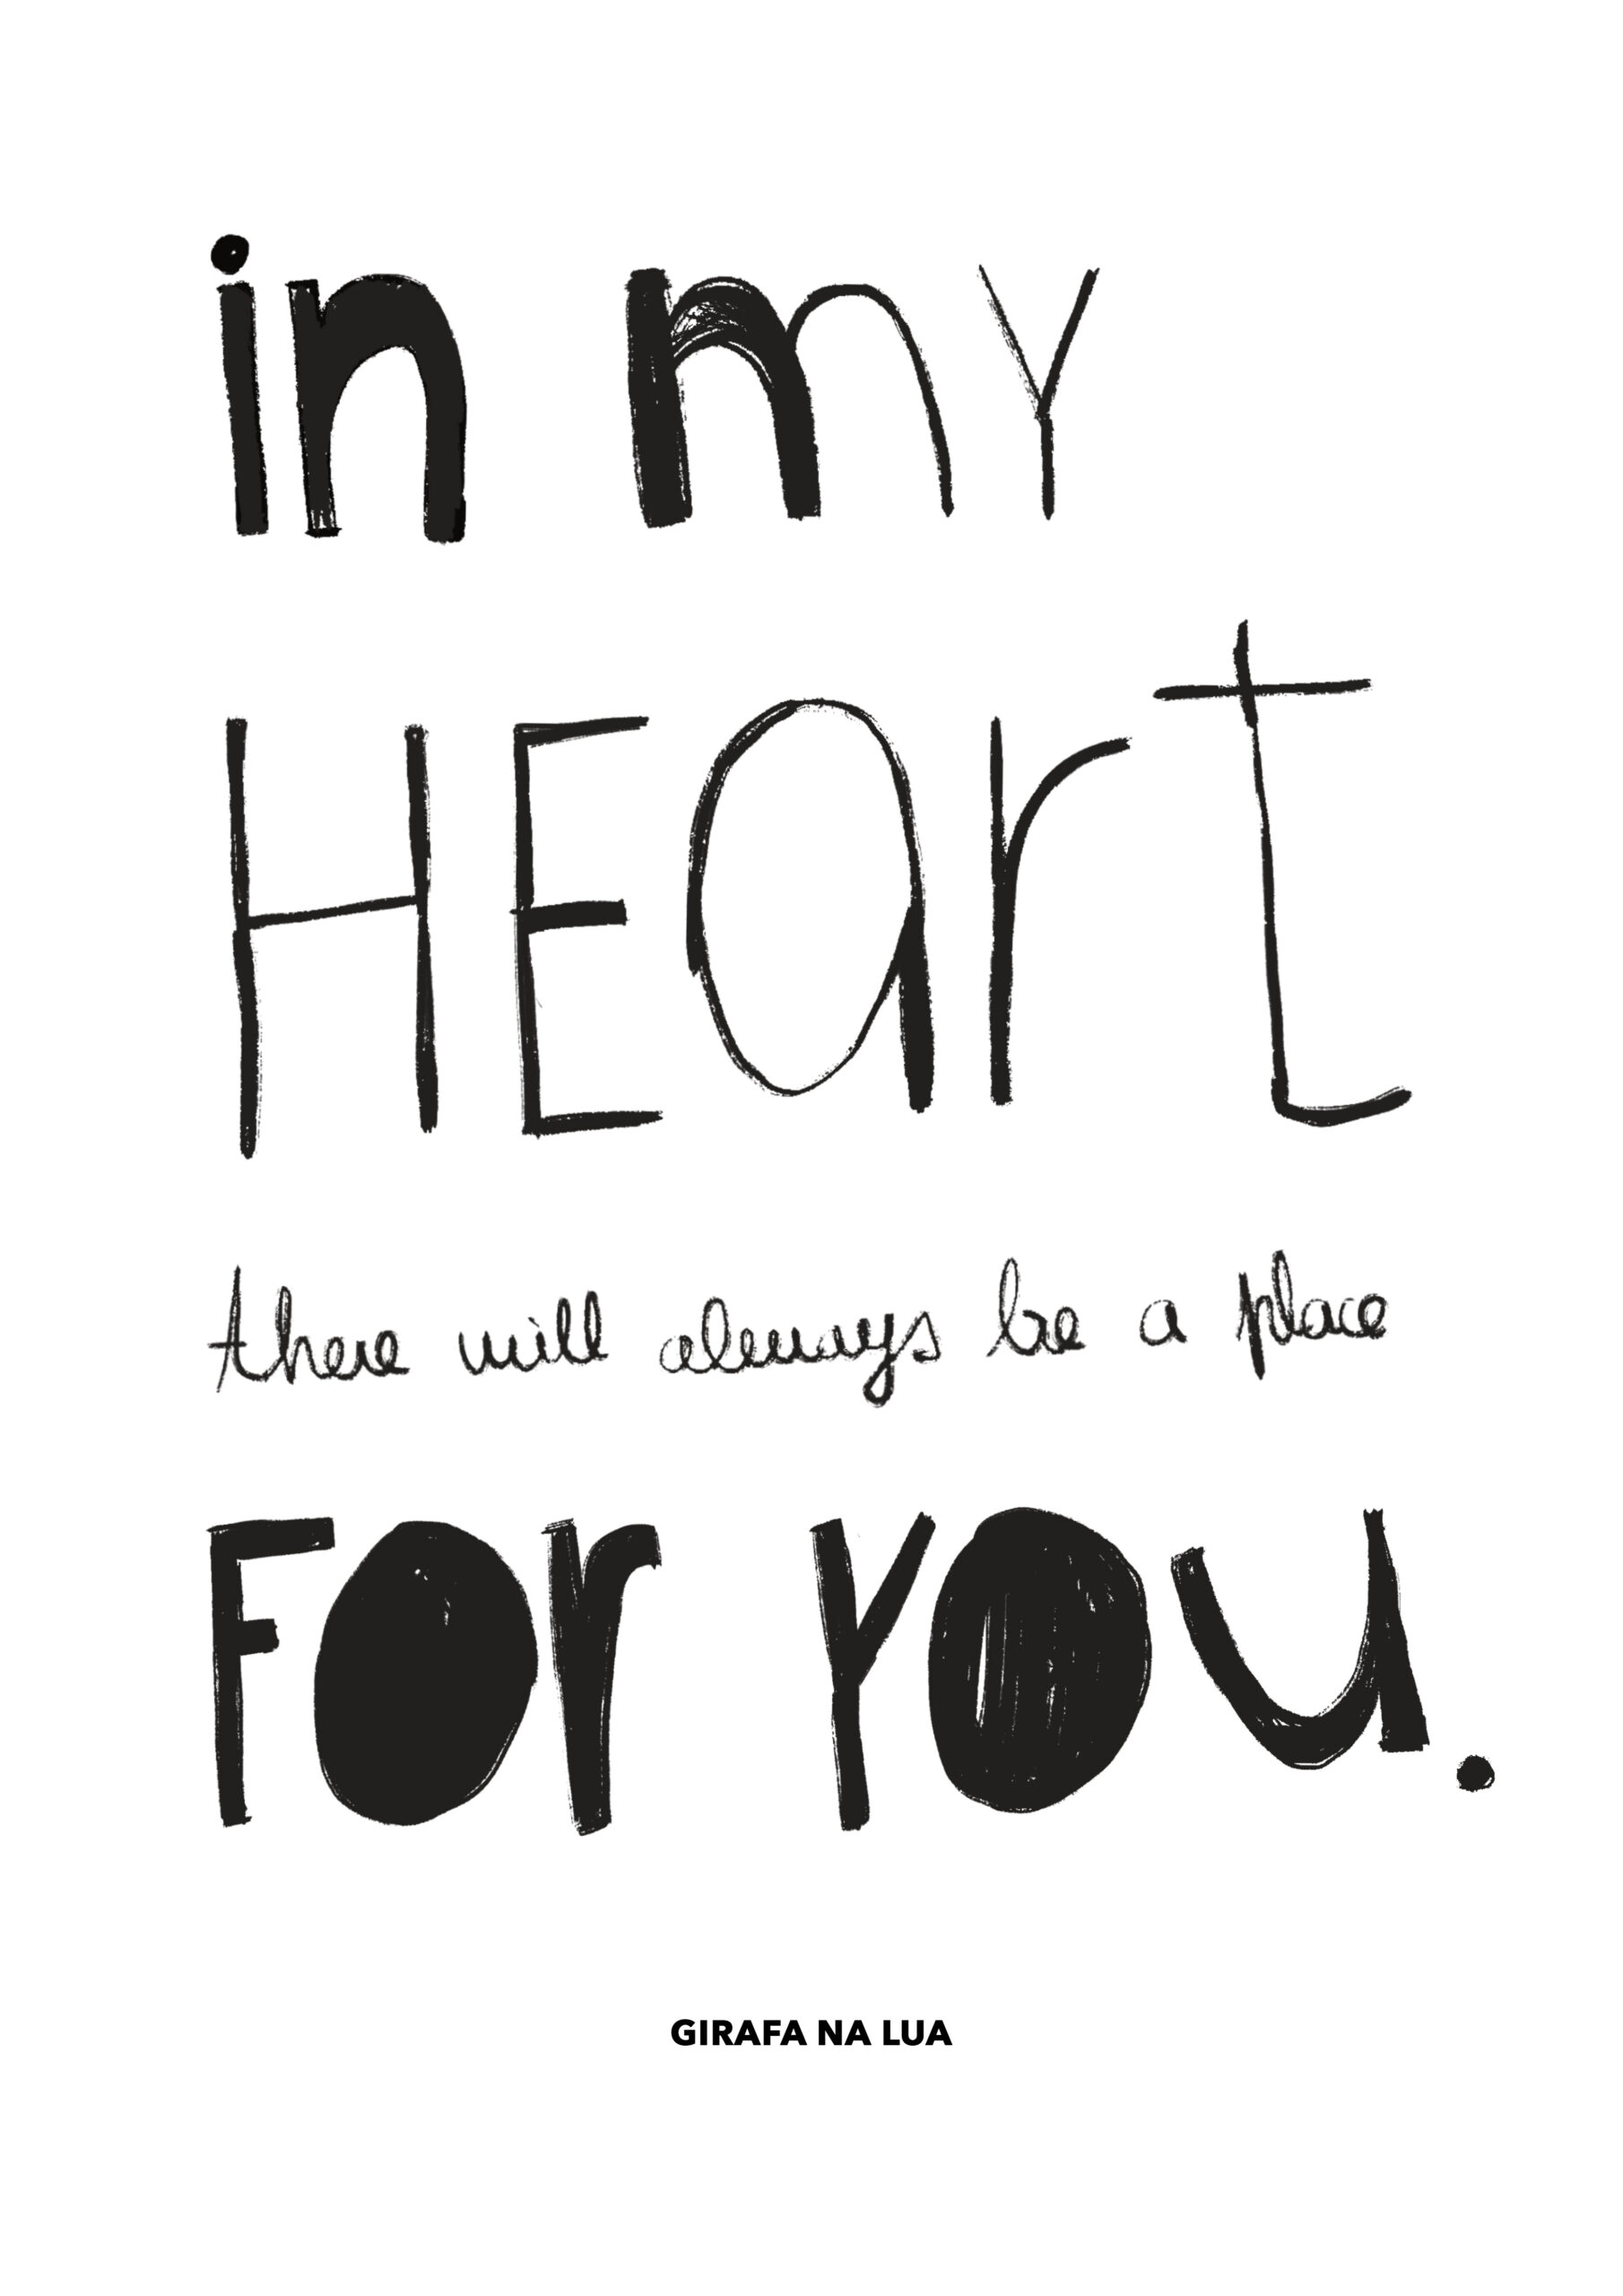 in mY
HEart
there will always be a place
For You.
GIRAFA NA LUA